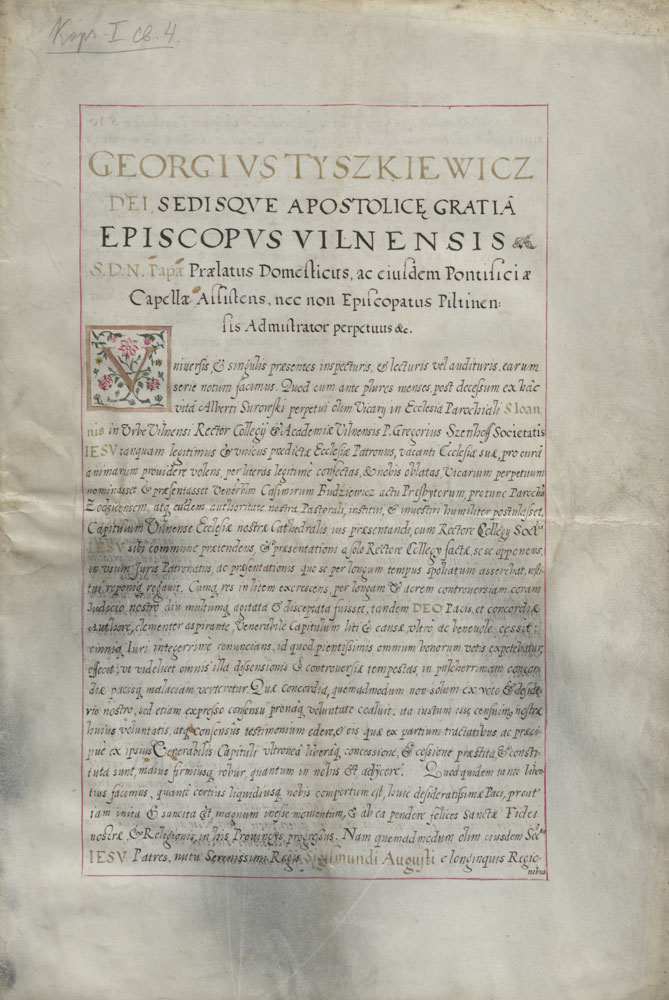 Kaps. I cb. 4.
GEORGIVS TYSZKIEWICZ
DEI, SEDISQVE APOSTOLICĘ GRATIÂ
EPISCOPVS VILNENSIS
S. D. N. Papæ Prælatus Domesticus, ac eiusdem Pontificiæ
Capellæ Assistens, nec non Episcopatus Piltinen:
sis Admistrator perpetuus &c.
Vniversis, & singulis præsentes inspecturis, & lecturis vel audituris, earum
serie notum facimus. Quod cum ante plures menses, post decessum ex hâc
vitâ Alberti Surowski perpetui olim Vicarij in Ecclesia Parochiali S Ioan
nis in Vrbe Vilnensi Rector Collegij & Academiæ Vilnensis P. Gregorius Szenhoff Societatis
IESV tanquam legitimus & vnicus prædictæ Ecclesiæ Patronus, vacanti Ecclesiæ suæ, pro curâ
animarum providere volens, per literas legitimè confectas, & nobis oblatas Vicarium perpetuum
nominasset & præsentasset Venerblm Casimirum Budziewicz actu Præsbyterum, pro tunc Parochū
eundem authoritate nostra Pastorali, institui, & investiri humiliter postulasset,
Capitulum Vilnense Ecclesiæ nostræ Cathedralis ius præsentandi, cum Rectore Collegij Soctis
IESV sibi commune prætendens, & præsentationi a solo Rectore Collegij factæ, se se opponens,
in vium Juris Patronatus, ac præsentationis quo se per longum tempus spoliatum asserebat, resti
tui, reponiq; rogavit. Cumq; res in litem excrescens, per longam & acrem controversiam, coram
Judicio nostro diu multumq; agitata & disceptata fuisset, tandem DEO Pacis, et concordiæ
Authore, clementer aspirante, Venerabile Capitulum liti & causæ vltrò ac benevole cessit:
omniq; Iuri integerrimè renuncians, id quod pientissimis omnium bonorum votis expetebatur,
effecit; vt videlicet omnis illa dissensionis & controversiæ tempestas, in pulcherrimam concor
diæ pacisq; malaciam verteretur. Quæ concordia, quemadmodum non solum ex voto & deside
rio nostro, sed etiam expresso consensu, pronaq; voluntate coaluit: ita iustum esse censuim9, nostræ
huius voluntatis, atq; consensus testimonium edere, & eis quæ ex partium tractatibus ac præci
puè ex ipsius Venerabilis Capituli vltronea liberaq; concessione, & cessione præstita & consti
tuta sunt, maius firmiusq; robur, quantum in nobis est adijcere. Quod quidem tanto liben
tius facimus, quantò certius liquidiusq; nobis compertum est, huic desideratissimæ Paci, prout
iam inita & sancita est, magnum inesse momentum, & ab ea pendere felices Sanctæ Fidei
nostræ, & Religionis, in his Provincijs progressus. Nam quemadmodum olim eiusdem Soctis
IESV Patres, nutu Serenissimi Regis Sigismundi Augusti e longinquis Regio
nibus